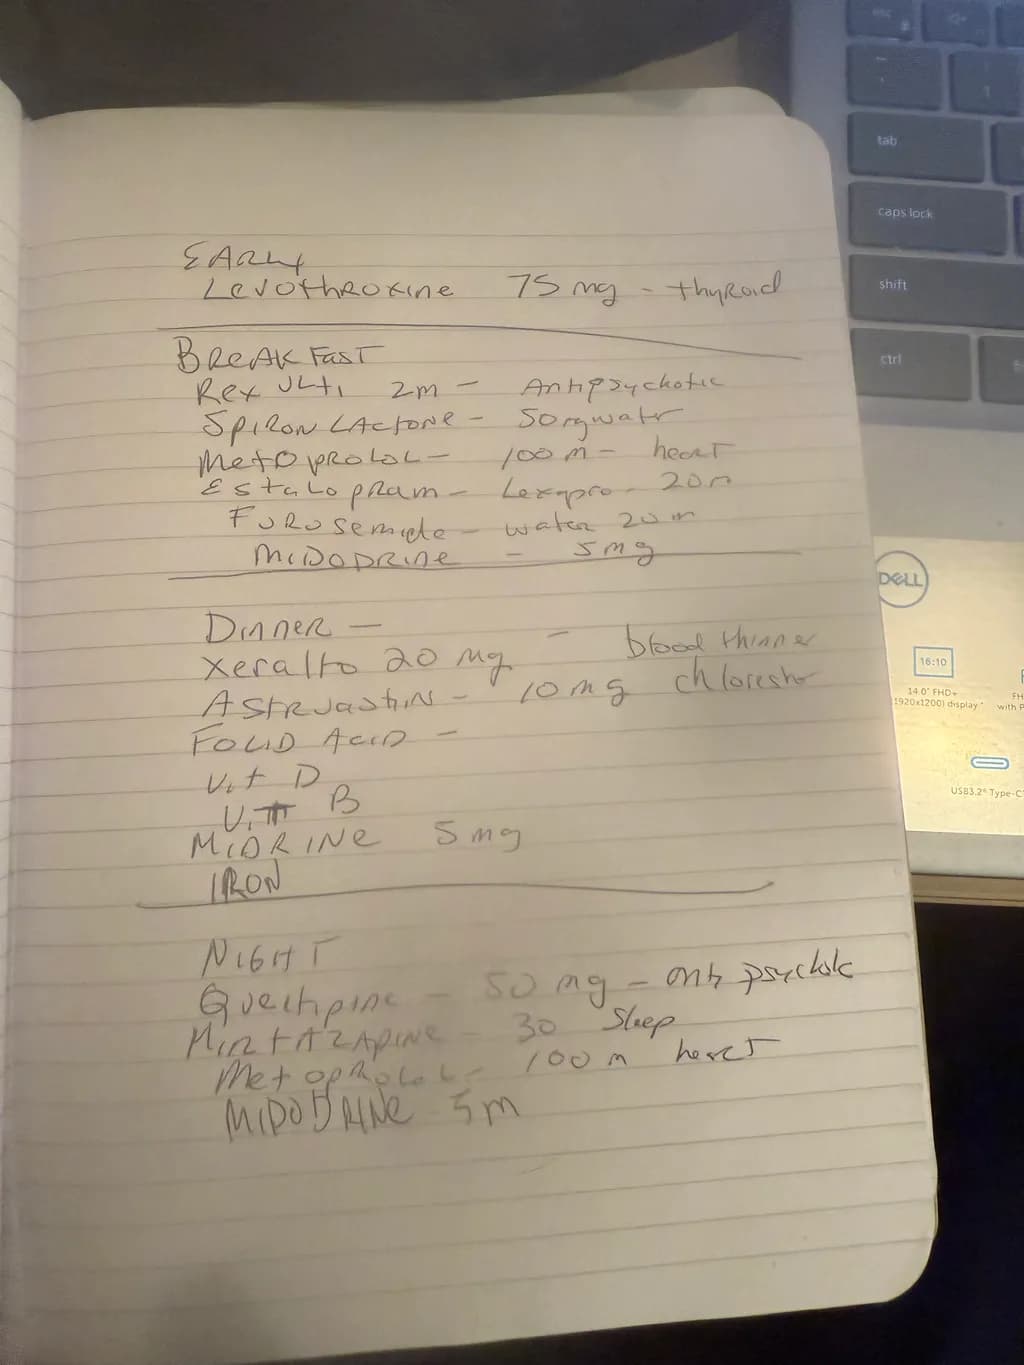 EARLY
Levothroxine 75 mg - thyroid
BREAKFAST
Rexulti 2m - Antipsychotic
Spironlactone - 50mg water
Metoprolol - 100 m - heart
Estalopram - Lexapro - 20m
Furosemide - water 20 m
MIDODRINE - 5 mg
Dinner -
Xeralto 20 mg - blood thinner
Astrvastin - 10 mg chlorestor
FOLID ACID -
Vit D
Vit B
MIDRINE 5 mg
IRON
NIGHT
Quetipine - 50 mg - anti psychotic
MIRTAZAPINE - 30 Sleep
Metoprolol - 100 m heart
MIDODRINE 5 m
esc
tab
caps lock
shift
ctrl
DELL
16:10
14.0" FHD+
1920x1200) display
with
USB3.2 Type-C